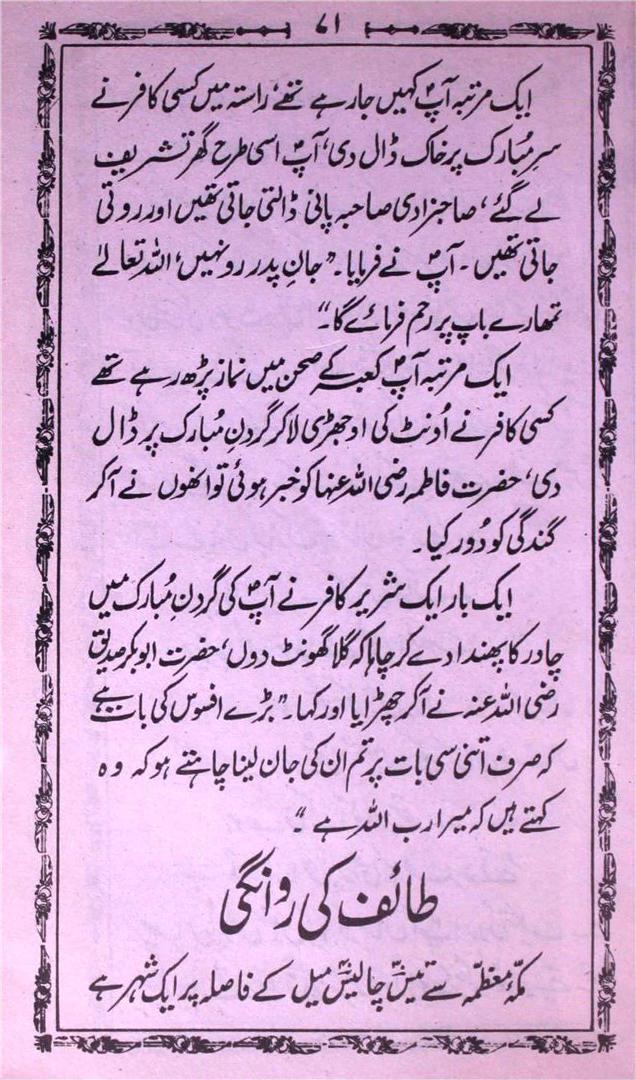 ۷۱
ایک مرتبہ آپؐ کہیں جا رہے تھے، راستہ میں کسی کافر نے
سرِ مُبارک پر خاک ڈال دی، آپؐ اسی طرح گھر تشریف
لے گئے، صاحبزادی صاحبہ پانی ڈالتی جاتی تھیں اور روتی
جاتی تھیں - آپؐ نے فرمایا۔ "جانِ پدر رو نہیں، اللہ تعالےٰ
تمھارے باپ پر رحم فرمائے گا"
ایک مرتبہ آپؐ کعبہ کے صحن میں نماز پڑھ رہے تھے
کسی کافر نے اُونٹ کی اوجھڑی لاکر گردنِ مُبارک پر ڈال
دی، حضرت فاطمہ رضی اللہ عنہا کو خبر ہوئی تو انھوں نے آکر
گندگی کو دُور کیا۔
ایک بار ایک شریر کافر نے آپؐ کی گردنِ مُبارک میں
چادر کا پھندا دے کر چاہا کہ گلا گھونٹ دوں، حضرت ابوبکر صدیق
رضی اللہ عنہ نے آکر چھڑایا اور کہا۔ "بڑے افسوس کی بات ہے
کہ صرف اتنی سی بات پر تم ان کی جان لینا چاہتے ہو کہ وہ
کہتے ہیں کہ میرا رب اللہ ہے"
طائف کی روانگی
مکّہ معظمّہ سے تیس۳۰ چالیس۴۰ میل کے فاصلہ پر ایک شہر ہے